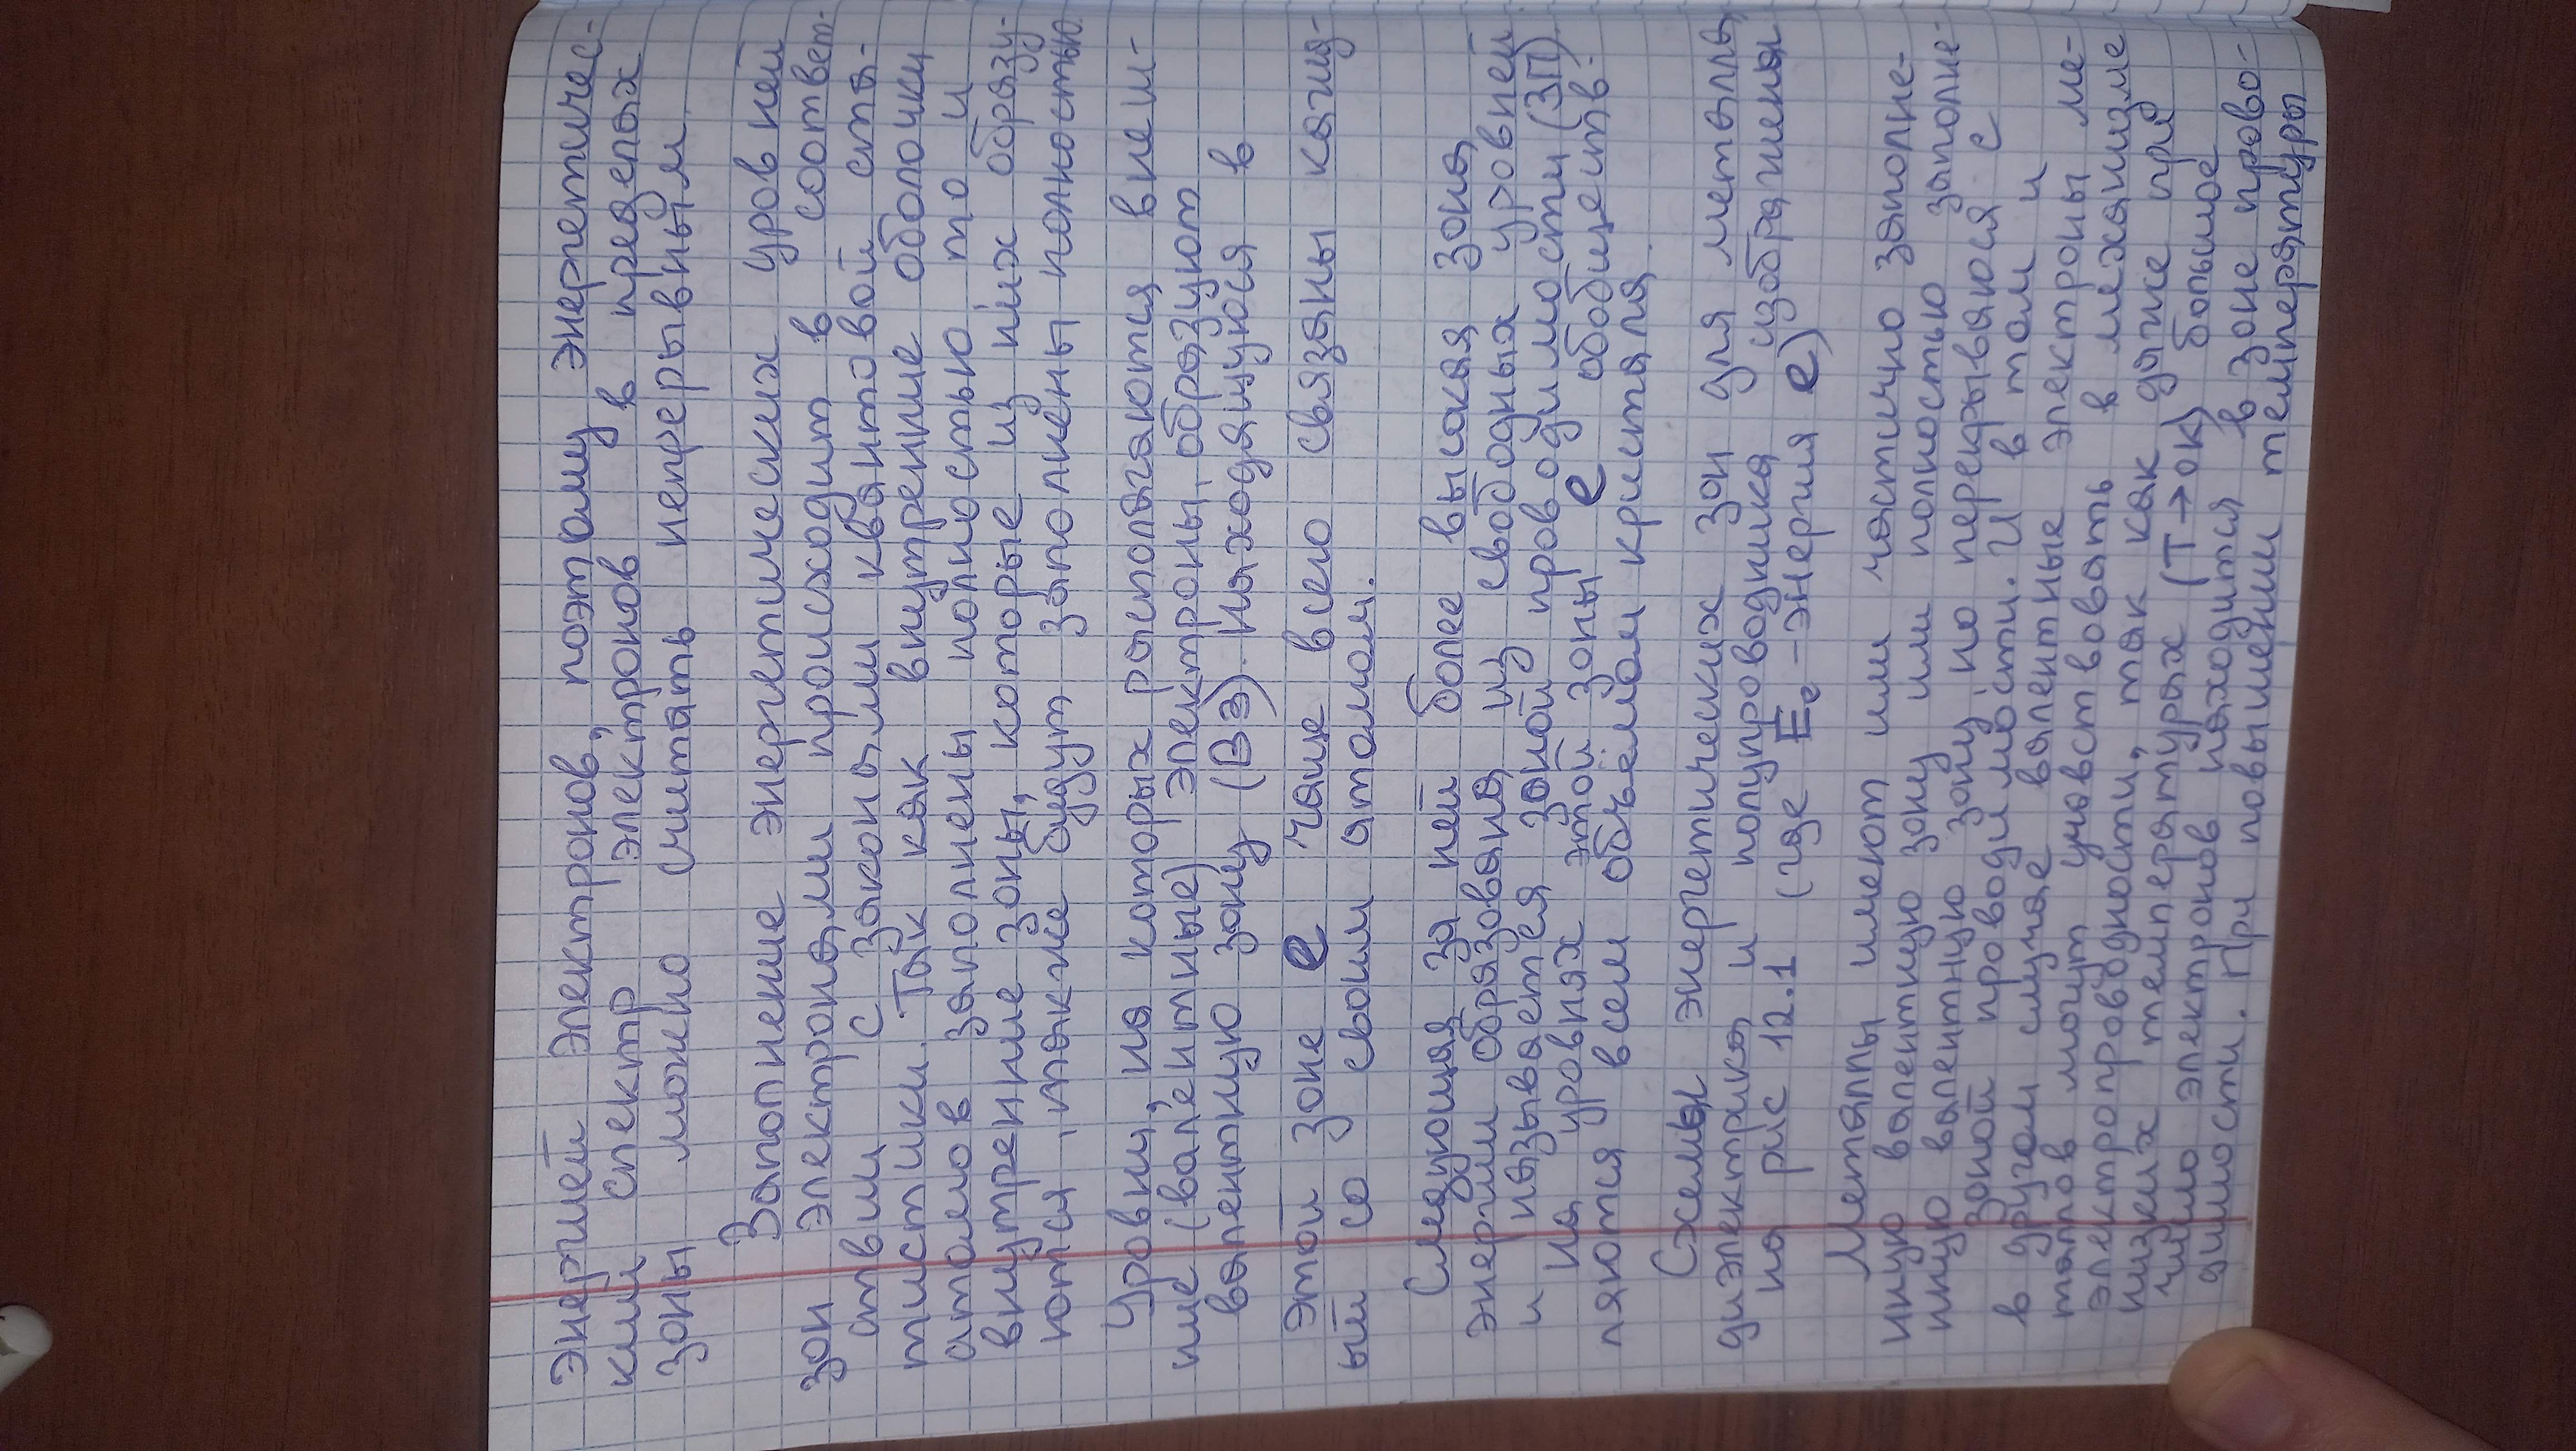 энергией электронов, поэтому энергетичес-
кий спектр электронов в пределах
зоны можно считать непрерывным.
Заполнение энергетических уровней
зон электронами происходит в соответ-
ствии с законами квантовой ста-
тистики. Так как внутренние оболочки
атомов заполнены полностью, то и
внутренние зоны, которые из них образу-
ются, также будут заполнены полностью.
Уровни, на которых располагаются внеш-
ние (валентные) электроны, образуют
валентную зону (ВЗ). Находящуюся в
этой зоне e чаще всего связаны кажд-
ый со своим атомом.
Следующая за ней более высокая зона
энергии образована из свободных уровней
и называется зоной проводимости (ЗП).
На уровнях этой зоны e обобществ-
ляются всем объёмом кристала.
Схемы энергетических зон для металла,
диэлектрика и полупроводника изображены
на рис 12.1 (где Eₑ - энергия e)
Металлы имеют или частично заполне-
нную валентную зону или полностью заполне-
нную валентную зону, но перекрываюся с
зоной проводимости. И в том и
в другом случае валентные электроны ме-
таллов могут учавствовать в механизме
электропроводности, так как даже при
низких температурах (T→0K) большое
число электронов находится в зоне прово-
димости. При повышении температуры